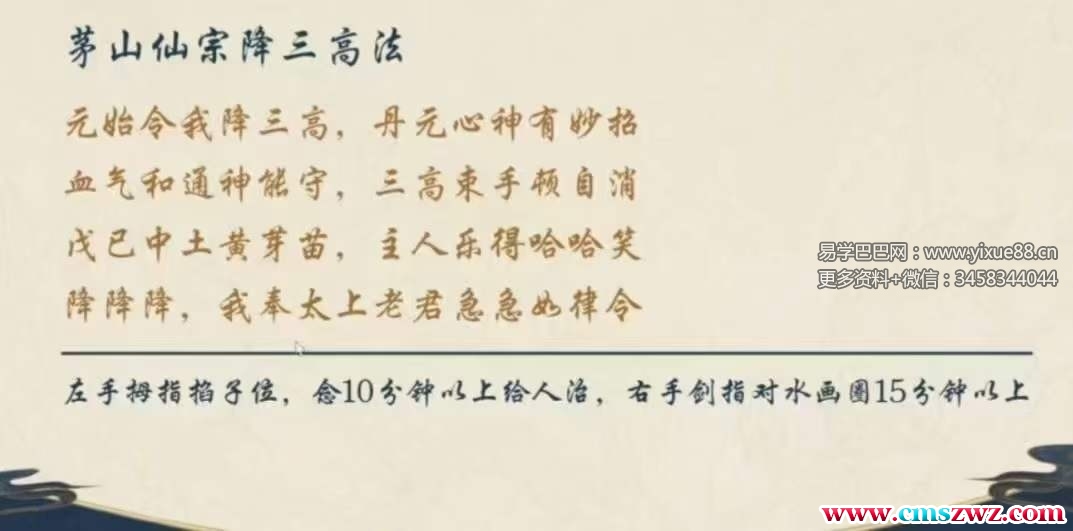 茅山仙宗降三高法
元始令我降三高，丹元心神有妙招
血气和通神能守，三高束手顿自消
戊己中土黄芽苗，主人乐得哈哈笑
易学巴巴网：www.yixue88.cn
更多资料+微信：3458344044
降降降，我奉太上老君急急如律令
左手拇指掐子位，念10分钟以上给人治，右手剑指对水画圈15分钟以上
www.cmszwz.com